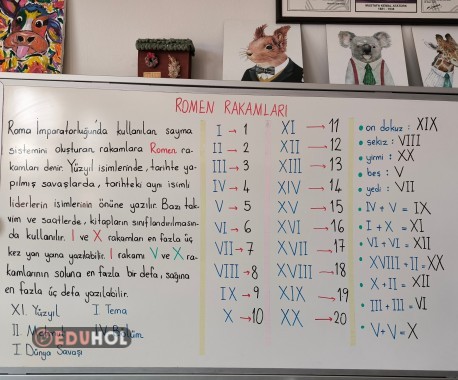 ROMEN RAKAMLARI
Roma İmparatorluğu'nda kullanılan sayma
sistemini oluşturan rakamlara Romen ra-
kamları denir. Yüzyıl isimlerinde, tarihte ya-
pılmış savaşlarda, tarihteki aynı isimli
liderlerin isimlerinin önüne yazılır. Bazı tak-
vim ve saatlerde, kitapların sınıflandırılmasın-
da kullanılır. I ve X rakamları en fazla üç
kez yan yana yazılabilir. I rakamı V ve X ra-
kamlarının soluna en fazla bir defa, sağına
en fazla üç defa yazılabilir.
XI. Yüzyıl I. Tema
II. IV. Bölüm
I. Dünya Savaşı
EDUHOL
I → 1
II → 2
III → 3
IV → 4
V → 5
VI → 6
VII → 7
VIII → 8
IX → 9
X → 10
XI → 11
XII → 12
XIII → 13
XIV → 14
XV → 15
XVI → 16
XVII → 17
XVIII → 18
XIX → 19
XX → 20
• on dokuz : XIX
• sekiz : VIII
• yirmi : XX
• beş : V
• yedi : VII
• IV + V = IX
• I + X = XI
• VI + VI = XII
• XVIII + II = XX
• X + II = XII
• III + III = VI
• V + V = X